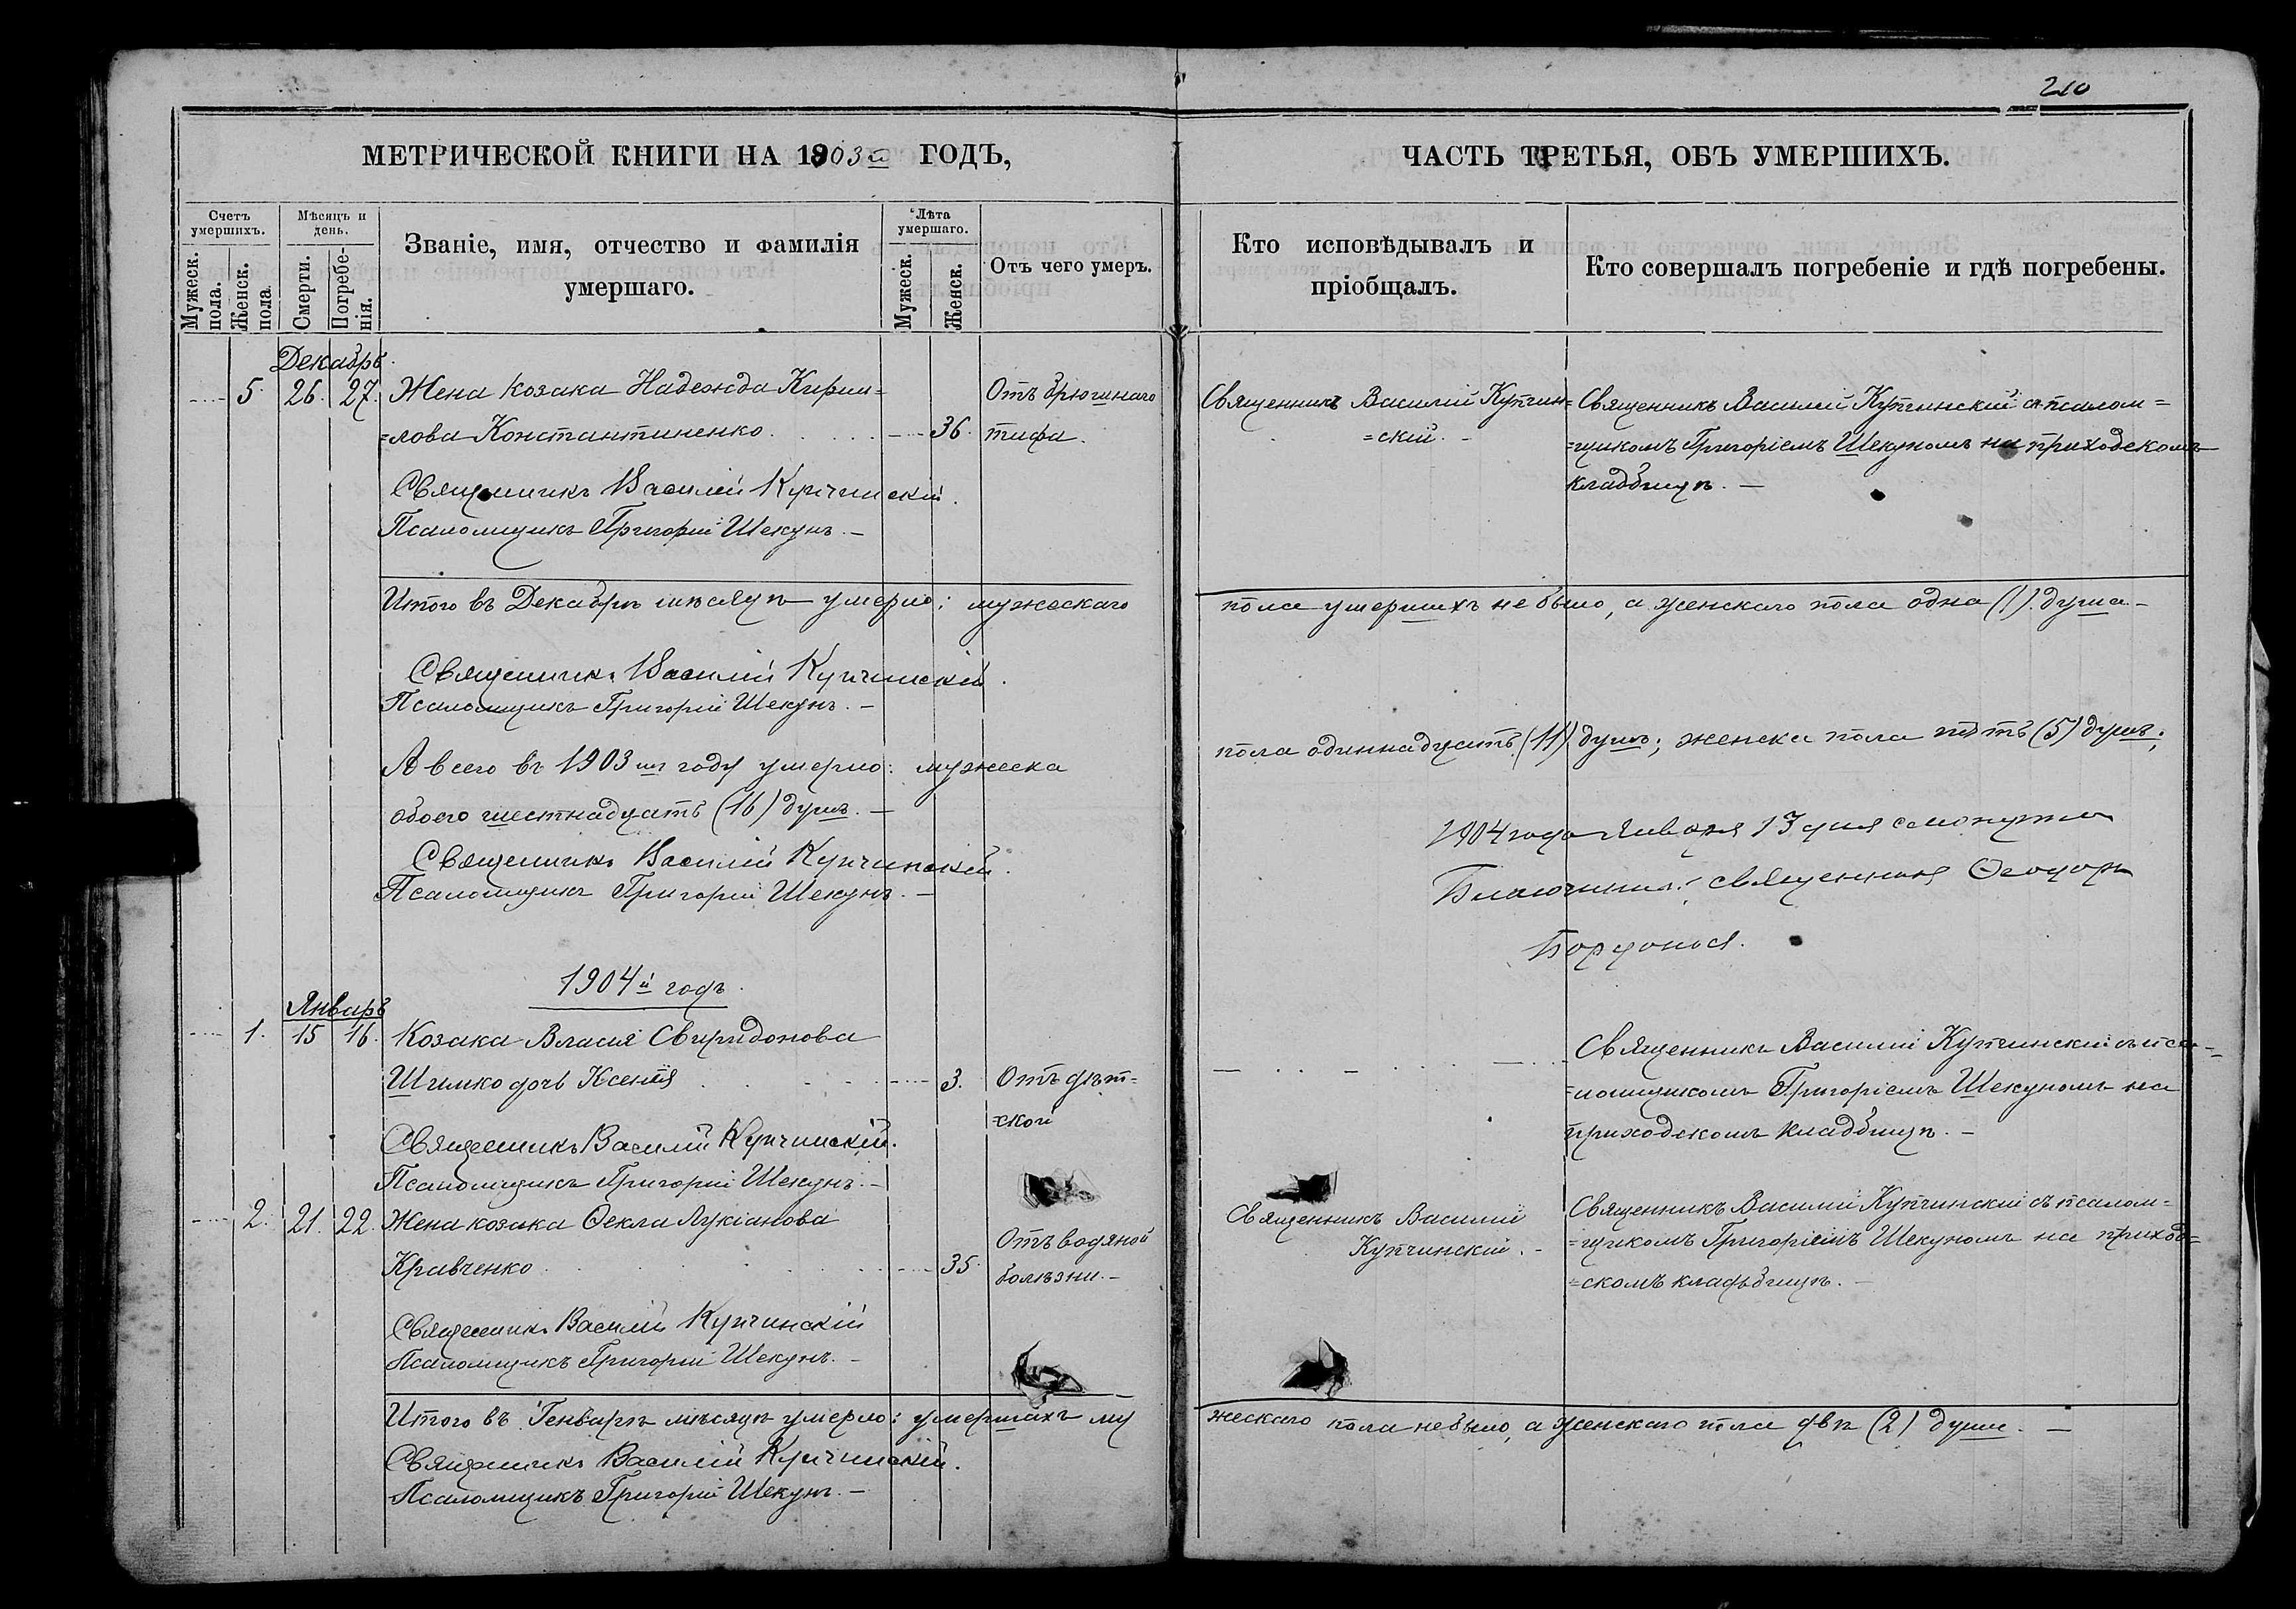 210
МЕТРИЧЕСКОЙ КНИГИ НА 1903й ГОДЪ,
ЧАСТЬ ТРЕТЬЯ, ОБЪ УМЕРШИХЪ.
Счетъ умершихъ.
Мужеск. пола.
Женск. пола
Мѣсяцъ и день.
Смерти.
Погребенія.
Званіе, имя, отчество и фамилія
умершаго.
Лѣта умершаго.
Мужеск.
Женск.
Отъ чего умеръ.
Кто исповѣдывалъ и
пріобщалъ.
Кто совершалъ погребеніе и гдѣ погребены.
Декабрь.
5. 26. 27. Жена козака Надежда Кирил= Отъ брюшнаго Священникъ Василій Купчин= Священникъ Василій Купчинскій съ псалом=
=лова Константиненко. 36. тифа. =скій. =щикомъ Григоріемъ Шекуномъ на приходскомъ
кладбищѣ. —
Священникъ Василій Купчинскій.
Псаломщикъ Григорій Шекунъ. —
Итого въ Декабрѣ мѣсяцѣ умерло: мужескаго пола умершихъ не было, а женскаго пола одна (1) душа —
Священникъ Василій Купчинскій.
Псаломщикъ Григорій Шекунъ. —
А всего въ 1903мъ году умерло: мужеска пола одиннадцать (11) душъ; женска пола пять (5) душъ;
обоего шестнадцать (16) душъ. —
Священникъ Василій Купчинскій.
Псаломщикъ Григорій Шекунъ. —
1904 года Января 13 дня
Благочинный, священникъ Ѳеодоръ
1904й годъ.
Январь
1. 15 16. Козака Власія Свиридонова Священникъ Василій Купчинскій съ пса=
Шимко дочь Ксенія 3. Отъ дѣт= =ломщикомъ Григоріемъ Шекуномъ на
=ской приходскомъ кладбищѣ. —
Священникъ Василій Купчинскій.
Псаломщикъ Григорій Шекунъ. —
2. 21. 22. Жена козака Ѳекла Лукіанова Отъ водяной Священникъ Василій Священникъ Василій Купчинскій съ псалом=
Кравченко 35. болѣзни. — Купчинскій. — =щикомъ Григоріемъ Шекуномъ на приход=
=скомъ кладьбищѣ. —
Священникъ Василій Купчинскій
Псаломщикъ Григорій Шекунъ. —
Итого въ Генварѣ мѣсяцѣ умерло: умершихъ му жескаго пола небыло, а женскаго пола двѣ (2) души. —
Священникъ Василій Купчинскій.
Псаломщикъ Григорій Шекунъ. —